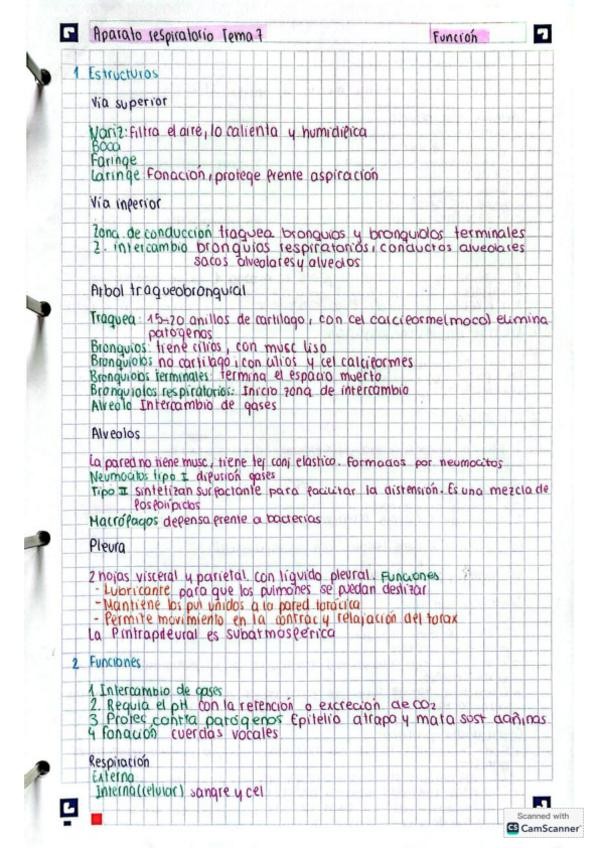 Aparato respiratorio Tema 7
Función
1 Estructuras
Vía superior
Nariz: Filtra el aire, lo calienta y humidifica
Boca
Faringe
Laringe Fonación, protege frente aspiración
Vía inferior
Zona de conducción traquea bronquios y bronquiolos terminales
Z. intercambio bronquios respiratorios, conductos alveolares
sacos alveolares y alveolos
Arbol traqueobronquial
Traquea: 15-20 anillos de cartilago, con cel calciforme(moco) elimina
patogenos
Bronquios: tiene cilios, con musc liso
Bronquiolos no cartilago, con cilios y cel calciformes
Bronquiolos terminales: termina el espacio muerto
Bronquiolos respiratorios: Inicio zona de intercambio
Alveolo Intercambio de gases
Alveolos
La pared no tiene musc, tiene tej conj elastico. Formados por neumocitos
Neumocitos tipo I difusión gases
Tipo II sintetizan surfactante para facilitar la distensión. Es una mezcla de
fosfolipidos
Macrófagos defensa frente a bacterias
Pleura
2 hojas visceral y parietal con líquido pleural. Funciones
- Lubricante para que los pulmones se puedan deslizar
- Mantiene los pul unidos a la pared torácica
- Permite movimiento en la contrac y relajación del torax
La Pintrapleural es subatmosferica
2 Funciones
1 Intercambio de gases
2. Regula el pH con la retención o excreción de CO2
3 Protec contra patógenos Epitelio atrapa y mata sust dañinas
4 Fonación cuerdas vocales
Respiración
Externa
Interna(celular) sangre y cel
Scanned with
CS CamScanner